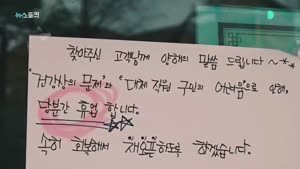 뉴스토리
찾아주신 고객님께 양해의 말씀 드립니다 ~**
"건강상의 문제"와 "대체 직원 구인의 어려움"으로 인해,
당분간 휴업 합니다.
속히 회복해서 재오픈하도록 하겠습니다.